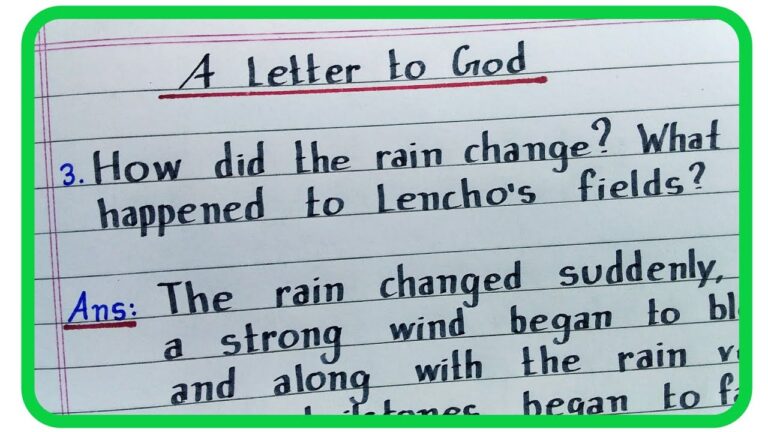 A Letter to God
3. How did the rain change? What
happened to Lencho's fields?
Ans: The rain changed suddenly,
a strong wind began to
and along with the rain
began to